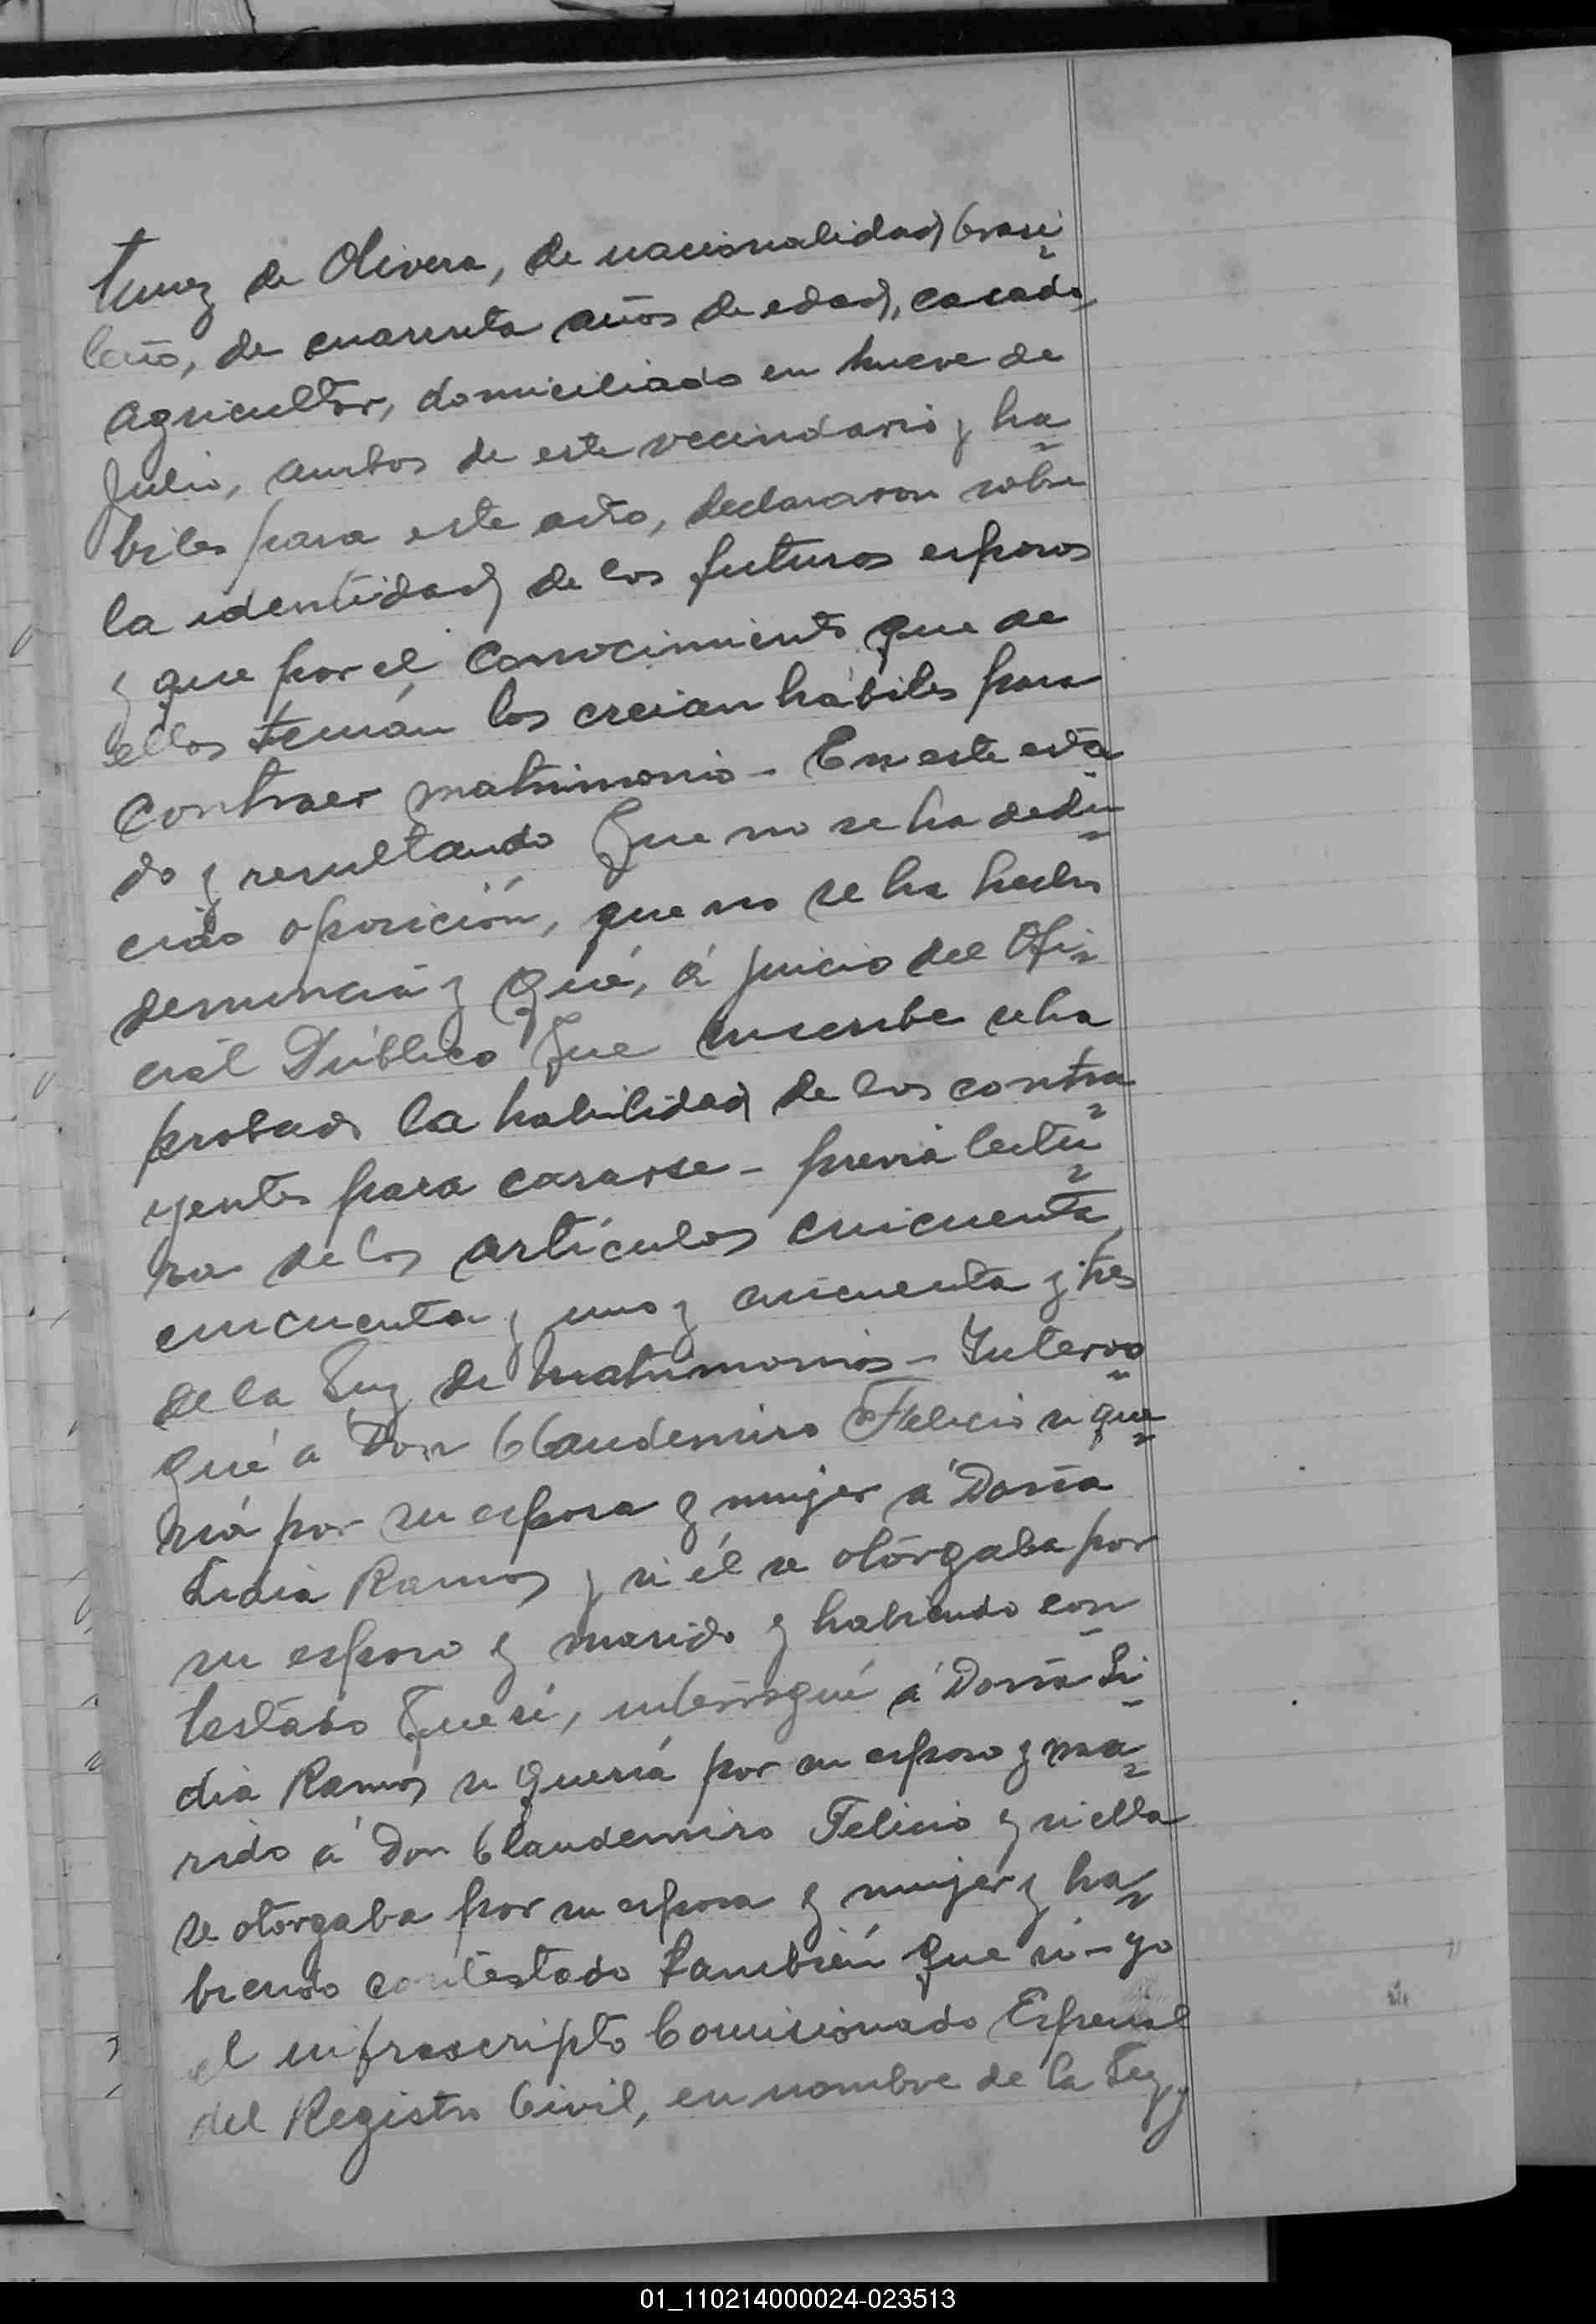 tunez de Olivera, de nacionalidad brasi=
leño, de cuarenta años de edad, casado,
agricultor, domiciliado en Nueve de
Julio, ambos de este vecindario y ha=
biles para este acto, declararon sobre
la identidad de los futuros esposos
y que por el conocimiento que de
ellos tenían los creian hábiles para
contraer matrimonio - En este esta=
do y resultando que no se ha dedu=
cido oposición, que no se ha hecho
denuncia y que, á juicio del Ofi=
cial Público que suscribe se ha
probado la habilidad de los contra=
yentes para casarse - previa lectu=
ra de los artículos cincuenta,
cincuenta y uno y cincuenta y tres
de la Ley de Matrimonios - Interro=
gué a Don Claudemiro Felicio si que=
ria por su esposa y mujer á Doña
Lidia Ramos y si él se otorgaba por
su esposo y marido y habiendo con=
testado que sí, interrogué á Doña Li=
dia Ramos si queria por su esposo y ma=
rido á Don Claudemiro Felicio y si ella
se otorgaba por su esposa y mujer y ha=
biendo contestado también que si - yo
el infrascripto Comisionado Especial
del Registro Civil, en nombre de la Ley,
01_110214000024-023513